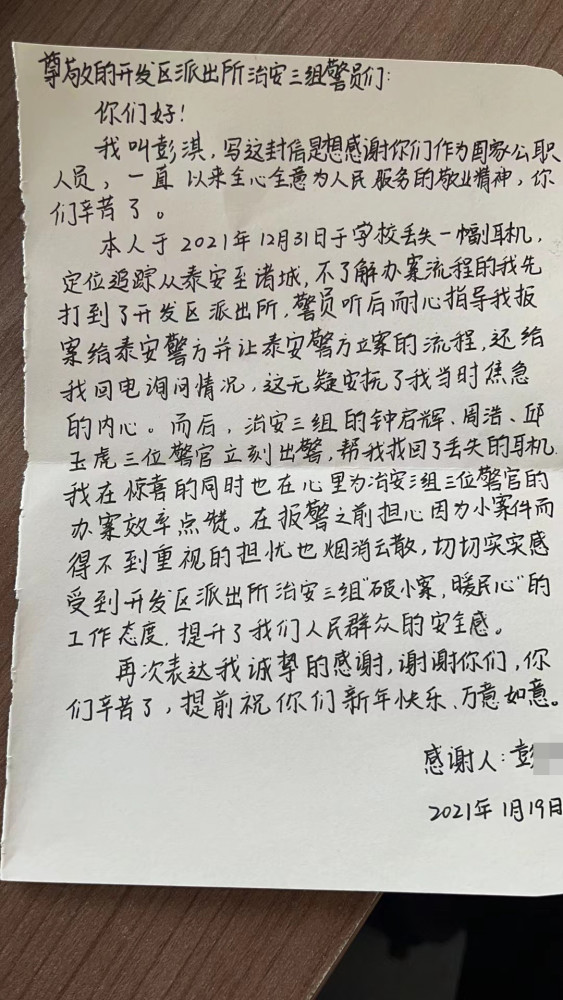 尊敬的开发区派出所治安三组警员们:
你们好!
我叫彭淇,写这封信是想感谢你们作为国家公职
人员,一直以来全心全意为人民服务的敬业精神,你
们辛苦了。
本人于2021年12月31日于学校丢失一幅耳机,
定位追踪从泰安至诸城,不了解办案流程的我先
打到了开发区派出所,警员听后耐心指导我报
案给泰安警方并让泰安警方立案的流程,还给
我回电询问情况,这无疑安抚了我当时焦急
的内心。而后,治安三组的钟启辉、周浩、邱
玉虎三位警官立刻出警,帮我找回了丢失的耳机.
我在惊喜的同时也在心里为治安三组三位警官的
办案效率点赞。在报警之前担心因为小案件而
得不到重视的担忧也烟消云散,切切实实感
受到开发区派出所治安三组"破小案,暖民心"的
工作态度,提升了我们人民群众的安全感。
再次表达我诚挚的感谢,谢谢你们,你
们辛苦了,提前祝你们新年快乐、万意如意。
感谢人:彭
2021年1月19日